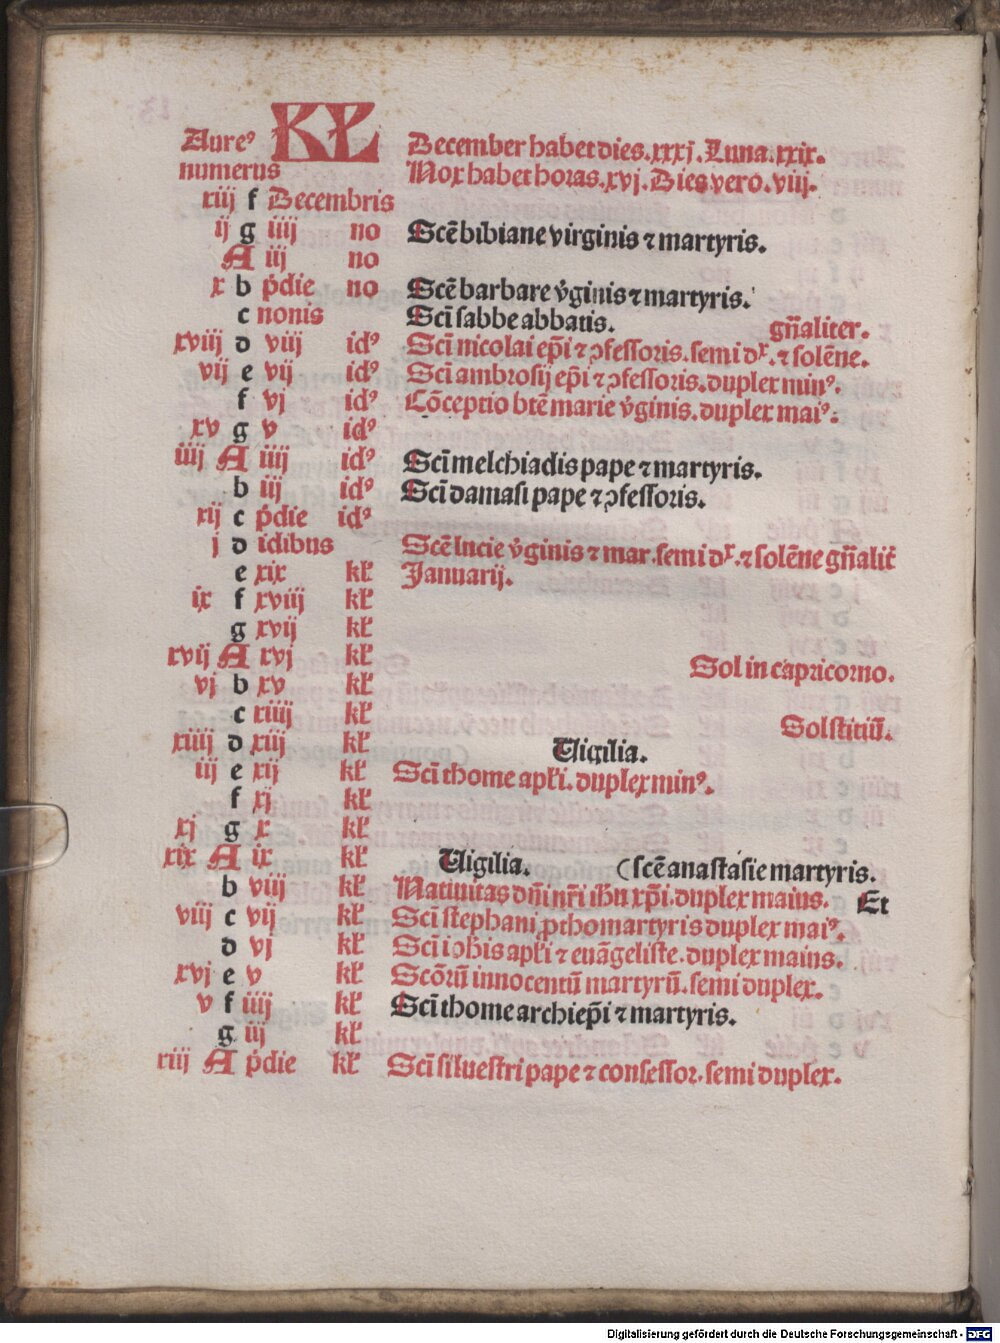 Aureꝰ KŁ December habet dies.xxxj.Luna.xxix.
numerus Nox habet horas.xvj.Dies vero.viij.
xiij f Decembris
ij g iiij no Scē bibiane virginis ⁊ martyris.
A iij no
x b p̄die no Scē barbare v̄ginis ⁊ martyris.
c nonis Scī sabbe abbatis. gn̄aliter.
xviij d viij idꝰ Scī nicolai ep̄i ⁊ ꝯfessoris.semi dx.⁊ solēne.
vij e vij idꝰ Scī ambrosij ep̄i ⁊ ꝯfessoris.duplex minꝰ.
f vj idꝰ Cōceptio btē marie v̄ginis.duplex maiꝰ.
xv g v idꝰ
iiij A iiij idꝰ Scī melchiadis pape ⁊ martyris.
b iij idꝰ Scī damasi pape ⁊ ꝯfessoris.
xij c p̄die idꝰ
j d idibus Scē lucie v̄ginis ⁊ mar.semi dx.⁊ solēne gn̄alit̄
e xix kł Januarij.
ix f xviij kł
g xvij kł
xvij A xvj kł Sol in capricorno.
vj b xv kł
c xiiij kł Solstitiū.
xiiij d xiij kł Uigilia.
iij e xij kł Scī thome apłi.duplex minꝰ.
f xj kł
xj g x kł
xix A ix kł Uigilia. (scē anastasie martyris.
b viij kł Natiuitas dn̄i nr̄i ihū xp̄i.duplex maius. Et
viij c vij kł Scī stephani ꝓthomartyris duplex maiꝰ.
d vj kł Scī iohis apłi ⁊ euāgeliste.duplex maius.
xvj e v kł Scōrū innocentū martyrū.semi duplex.
v f iiij kł Scī thome archiep̄i ⁊ martyris.
g iij kł
xiij A p̄die kł Scī siluestri pape ⁊ confessor.semi duplex.
Digitalisierung gefördert durch die Deutsche Forschungsgemeinschaft - DFG